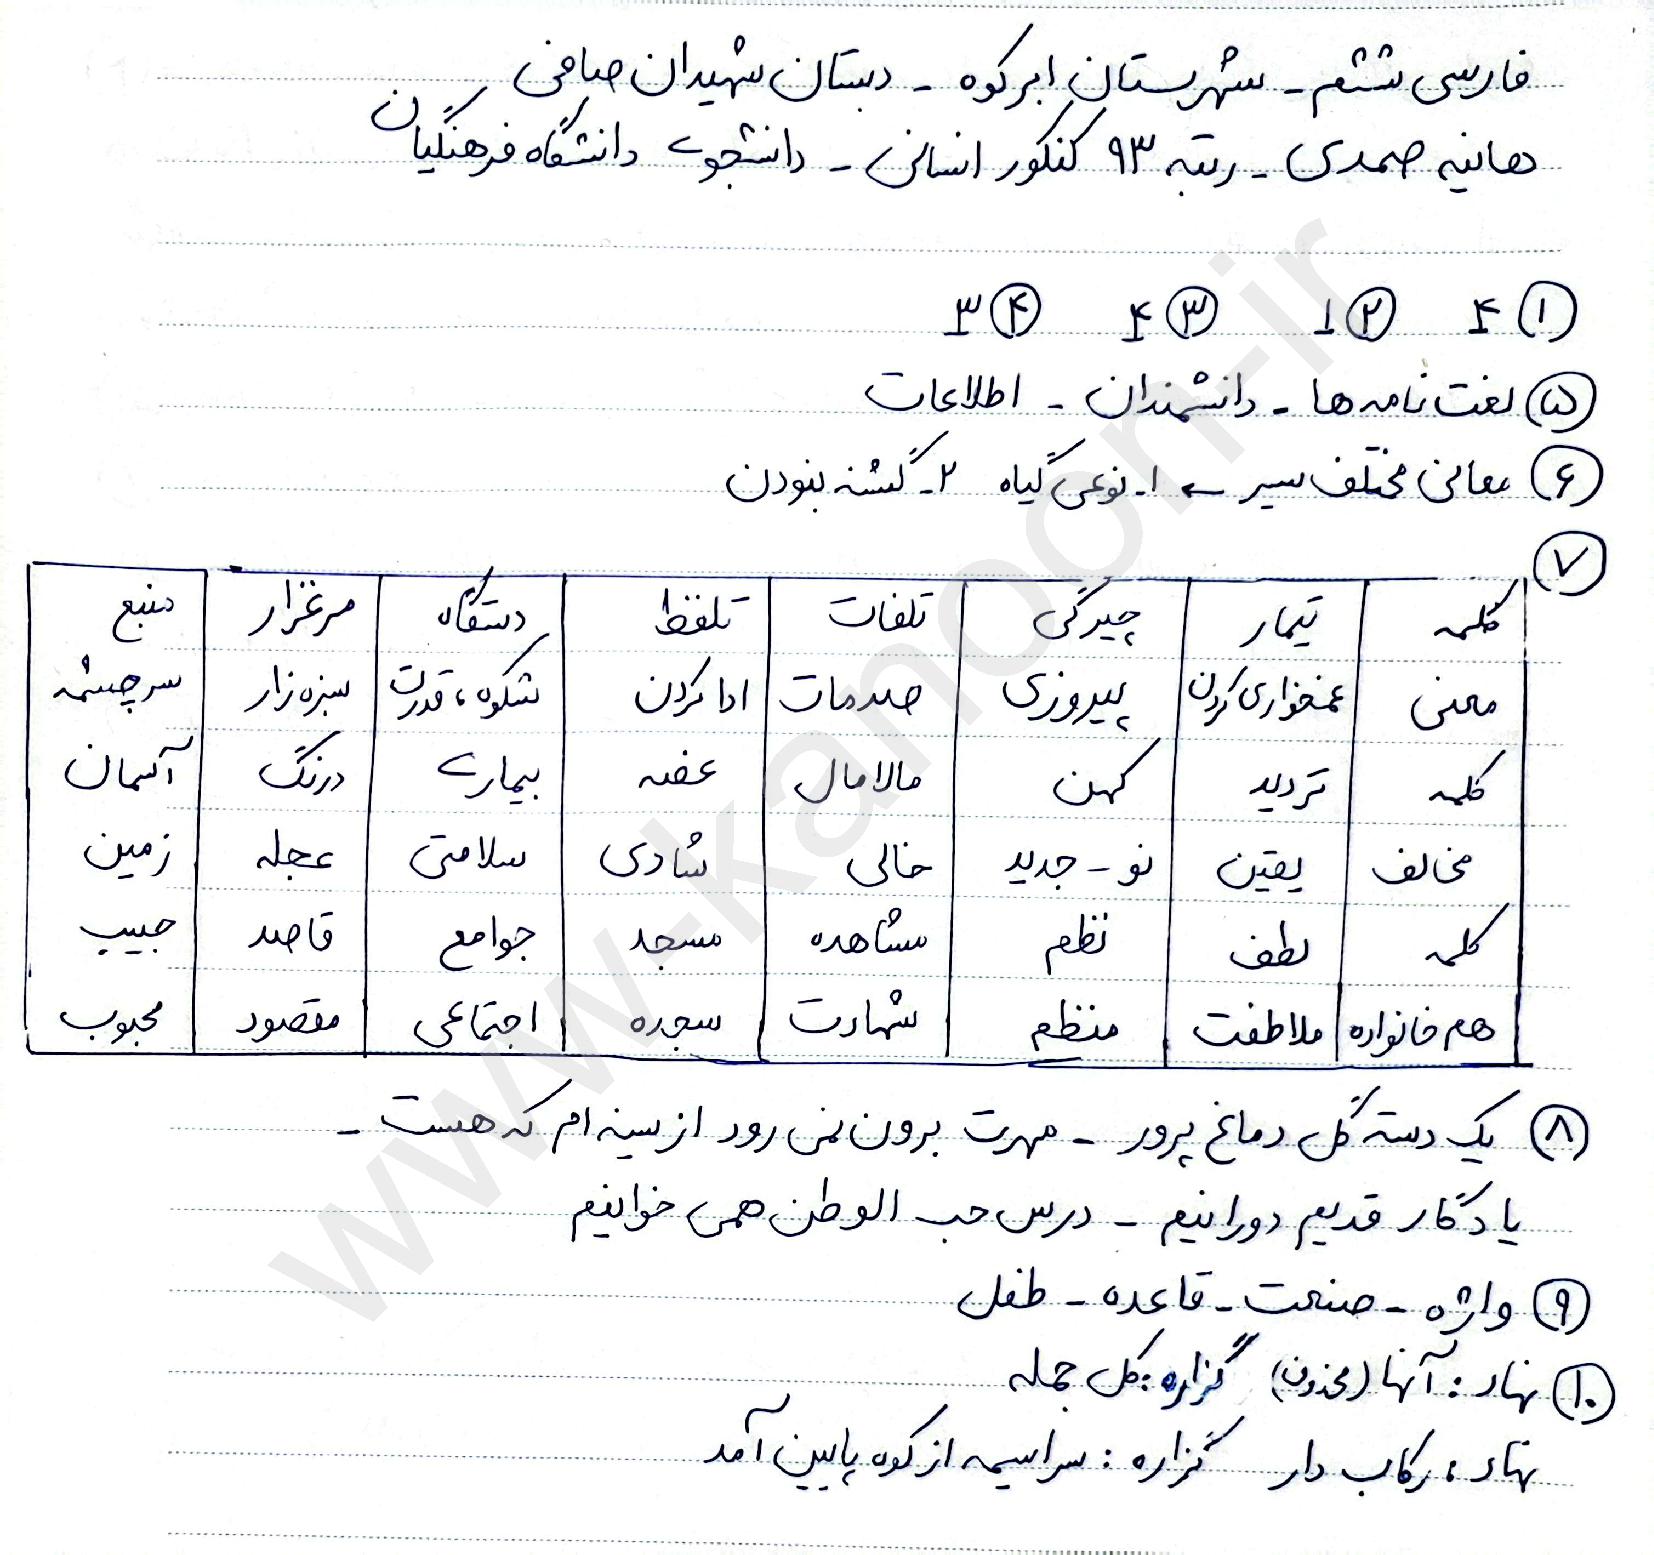 فارسی ششم - شهرستان ابرکوه - دبستان شهیدان صافی
هانیه صمدی - رتبه ۹۳ کنکور انسانی - دانشجوی دانشگاه فرهنگیان
۱) ۴ ۲) ۱ ۳) ۴ ۴) ۳
۵) لغت نامه ها - دانشمندان - اطلاعات
۶) معانی مختلف سیر ← ۱- نوعی گیاه ۲- گشنه نبودن
۷)
کلمه تیمار چیرگی تلفات تلفظ دستگاه مرغزار منبع
معنی غمخواری کردن پیروزی صدمات ادا کردن شکوه، قدرت سبزه زار سرچشمه
کلمه تردید کهن مالامال غصه بیماری درنگ آسمان
مخالف یقین نو - جدید خالی شادی سلامتی عجله زمین
کلمه لطف نظم مشاهده مسجد جوامع قاصد حبیب
هم خانواده ملاطفت منظم شهادت سجده اجتماعی مقصود محبوب
۸) یک دسته گل دماغ پرور - مهرت برون نمی رود از سینه ام که هست -
یادگار قدیم دورانیم - درس حب الوطن همی خوانیم
۹) واژه - صنعت - قاعده - طفل
۱۰) نهاد: آنها (محذوف) گزاره: کل جمله
نهاد: رکاب دار گزاره: سراسیمه از کوه پایین آمد
www-kanoon-ir